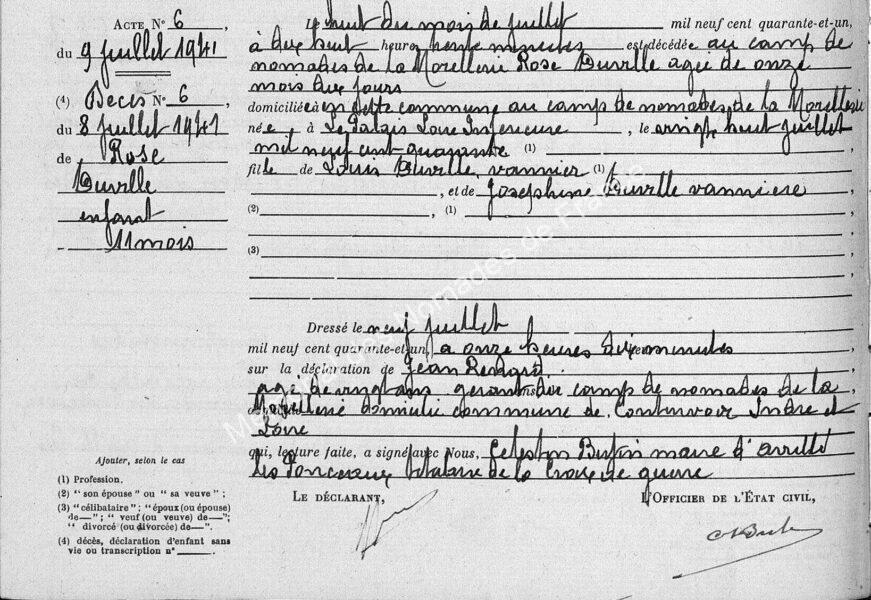 ACTE N° 6,
du 9 juillet 1941
(4) Décès N° 6,
du 8 juillet 1941
de Rose
Duville
enfant
11 mois
Le huit du mois de juillet mil neuf cent quarante-et-un,
à dix huit heures trente minutes est décédée au camp de
nomades de la Morellerie Rose Duville agée de onze
mois dix jours
domiciliée en cette commune au camp de nomades de la Morellerie
née, à Le Palais Loire Inférieure, le vingt huit juillet
mil neuf cent quarante (1)
fille de Louis Duville vannier (1)
, et de Joséphine Duville vannière
(2) , (1) ,
(3)
Dressé le neuf juillet
mil neuf cent quarante-et-un, à onze heures dix minutes
sur la déclaration de Jean Renard
agé de vingt ans gérant du camp de nomades de la
Morellerie domicilié commune de Continvoir Indre et
Loire
qui, lecture faite, a signé avec Nous, Célestin maire d'Avrillé
Les Ponceaux titulaire de la Croix de guerre
LE DÉCLARANT, L'OFFICIER DE L'ÉTAT CIVIL,
Ajouter, selon le cas
(1) Profession.
(2) " son épouse " ou " sa veuve " ;
(3) " célibataire " ; " époux (ou épouse)
de—" ; " veuf (ou veuve) de—" ;
" divorcé (ou divorcée) de—".
(4) décès, déclaration d'enfant sans
vie ou transcription n° ____.
Mémoires des Nomades de France